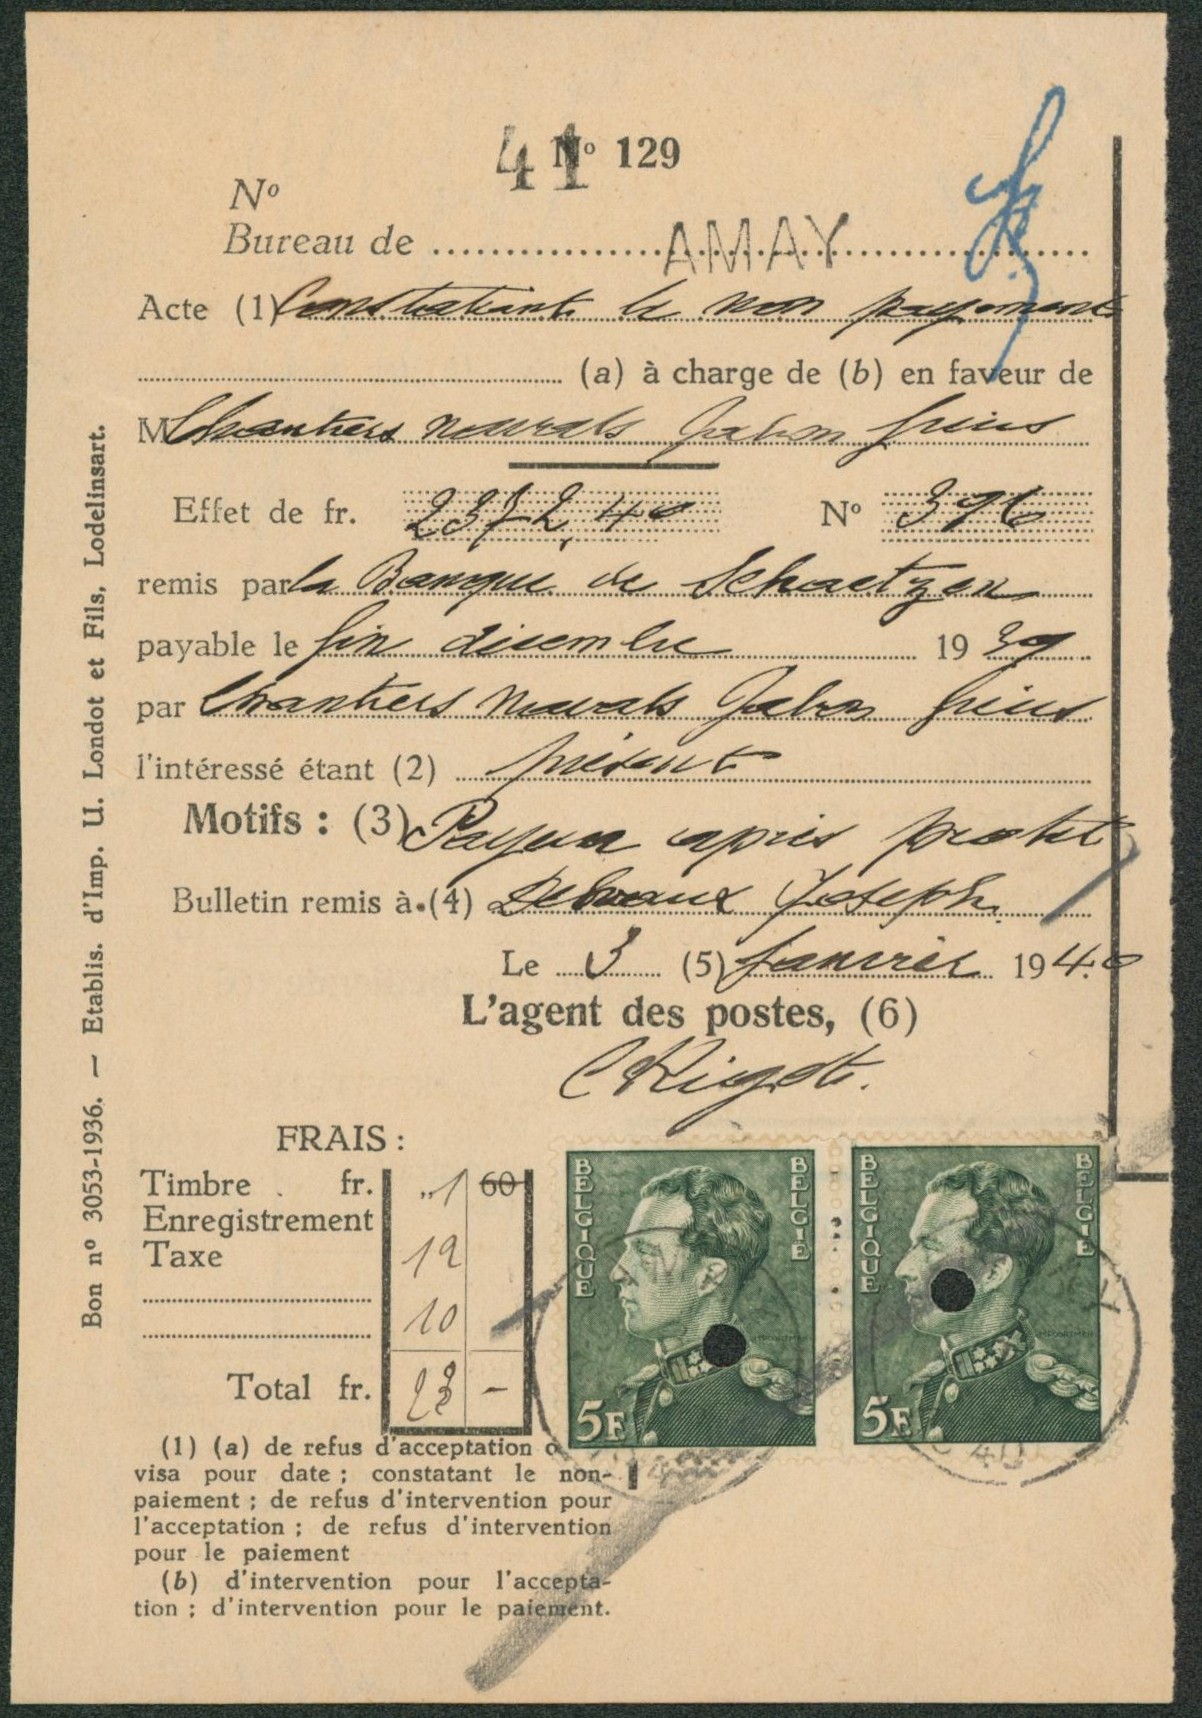 41 Nº 129
Nº
Bureau de AMAY
Acte (1) Constatant le non payement
(a) à charge de (b) en faveur de
M Chantiers navals Jabon frères
Effet de fr. 2372,40 Nº 396
remis par la Banque de Schaetzen
payable le fin décembre 1939
par Chantiers Navals Jabon frères
l'intéressé étant (2) présent
Motifs : (3) Payera après protêt
Bulletin remis à (4) Delvaux Joseph
Le 3 (5) janvier 1940
L'agent des postes, (6)
C Rigot.
FRAIS :
Timbre fr. 1 60
Enregistrement
Taxe 12
10
Total fr. 23 -
(1) (a) de refus d'acceptation o
visa pour date ; constatant le non-
paiement ; de refus d'intervention pour
l'acceptation ; de refus d'intervention
pour le paiement
(b) d'intervention pour l'accepta-
tion ; d'intervention pour le paiement.
Bon nº 3053-1936. — Etablis. d'Imp. U. Londot et Fils, Lodelinsart.
BELGIQUE BELGIË
5F
BELGIQUE BELGIË
5F